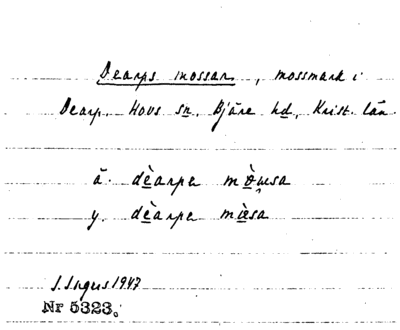 Dearps mossar, mossmark i
Dearp. Hovs sn. Bjäre hd, Krist. län.
ä. dèarpa
y. dèarpa
1947
Nr 5323.